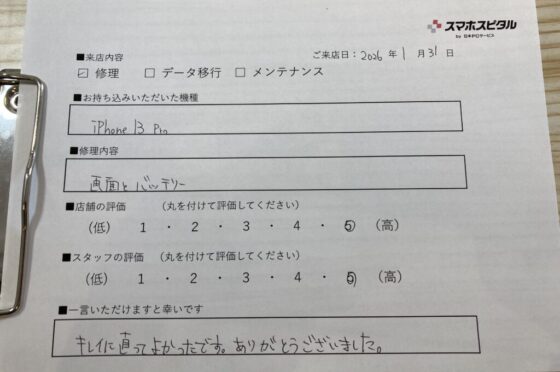 スマホスピタル
by 日本PCサービス
■来店内容
ご来店日：2026 年 1 月 31 日
☑ 修理 □ データ移行 □ メンテナンス
■お持ち込みいただいた機種
iPhone 13 Pro
■修理内容
画面とバッテリー
■店舗の評価 （丸を付けて評価してください）
（低） 1 ・ 2 ・ 3 ・ 4 ・ 5 （高）
■スタッフの評価 （丸を付けて評価してください）
（低） 1 ・ 2 ・ 3 ・ 4 ・ 5 （高）
■一言いただけますと幸いです
キレイに直ってよかったです。ありがとうございました。